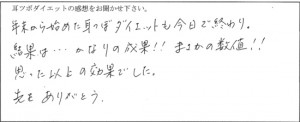 耳ツボダイエットの感想をお聞かせ下さい。
年末から始めた耳つぼダイエットも今日で終わり。
結果は…かなりの成果!!まさかの数値!!
思った以上の効果でした。
ありがとう。